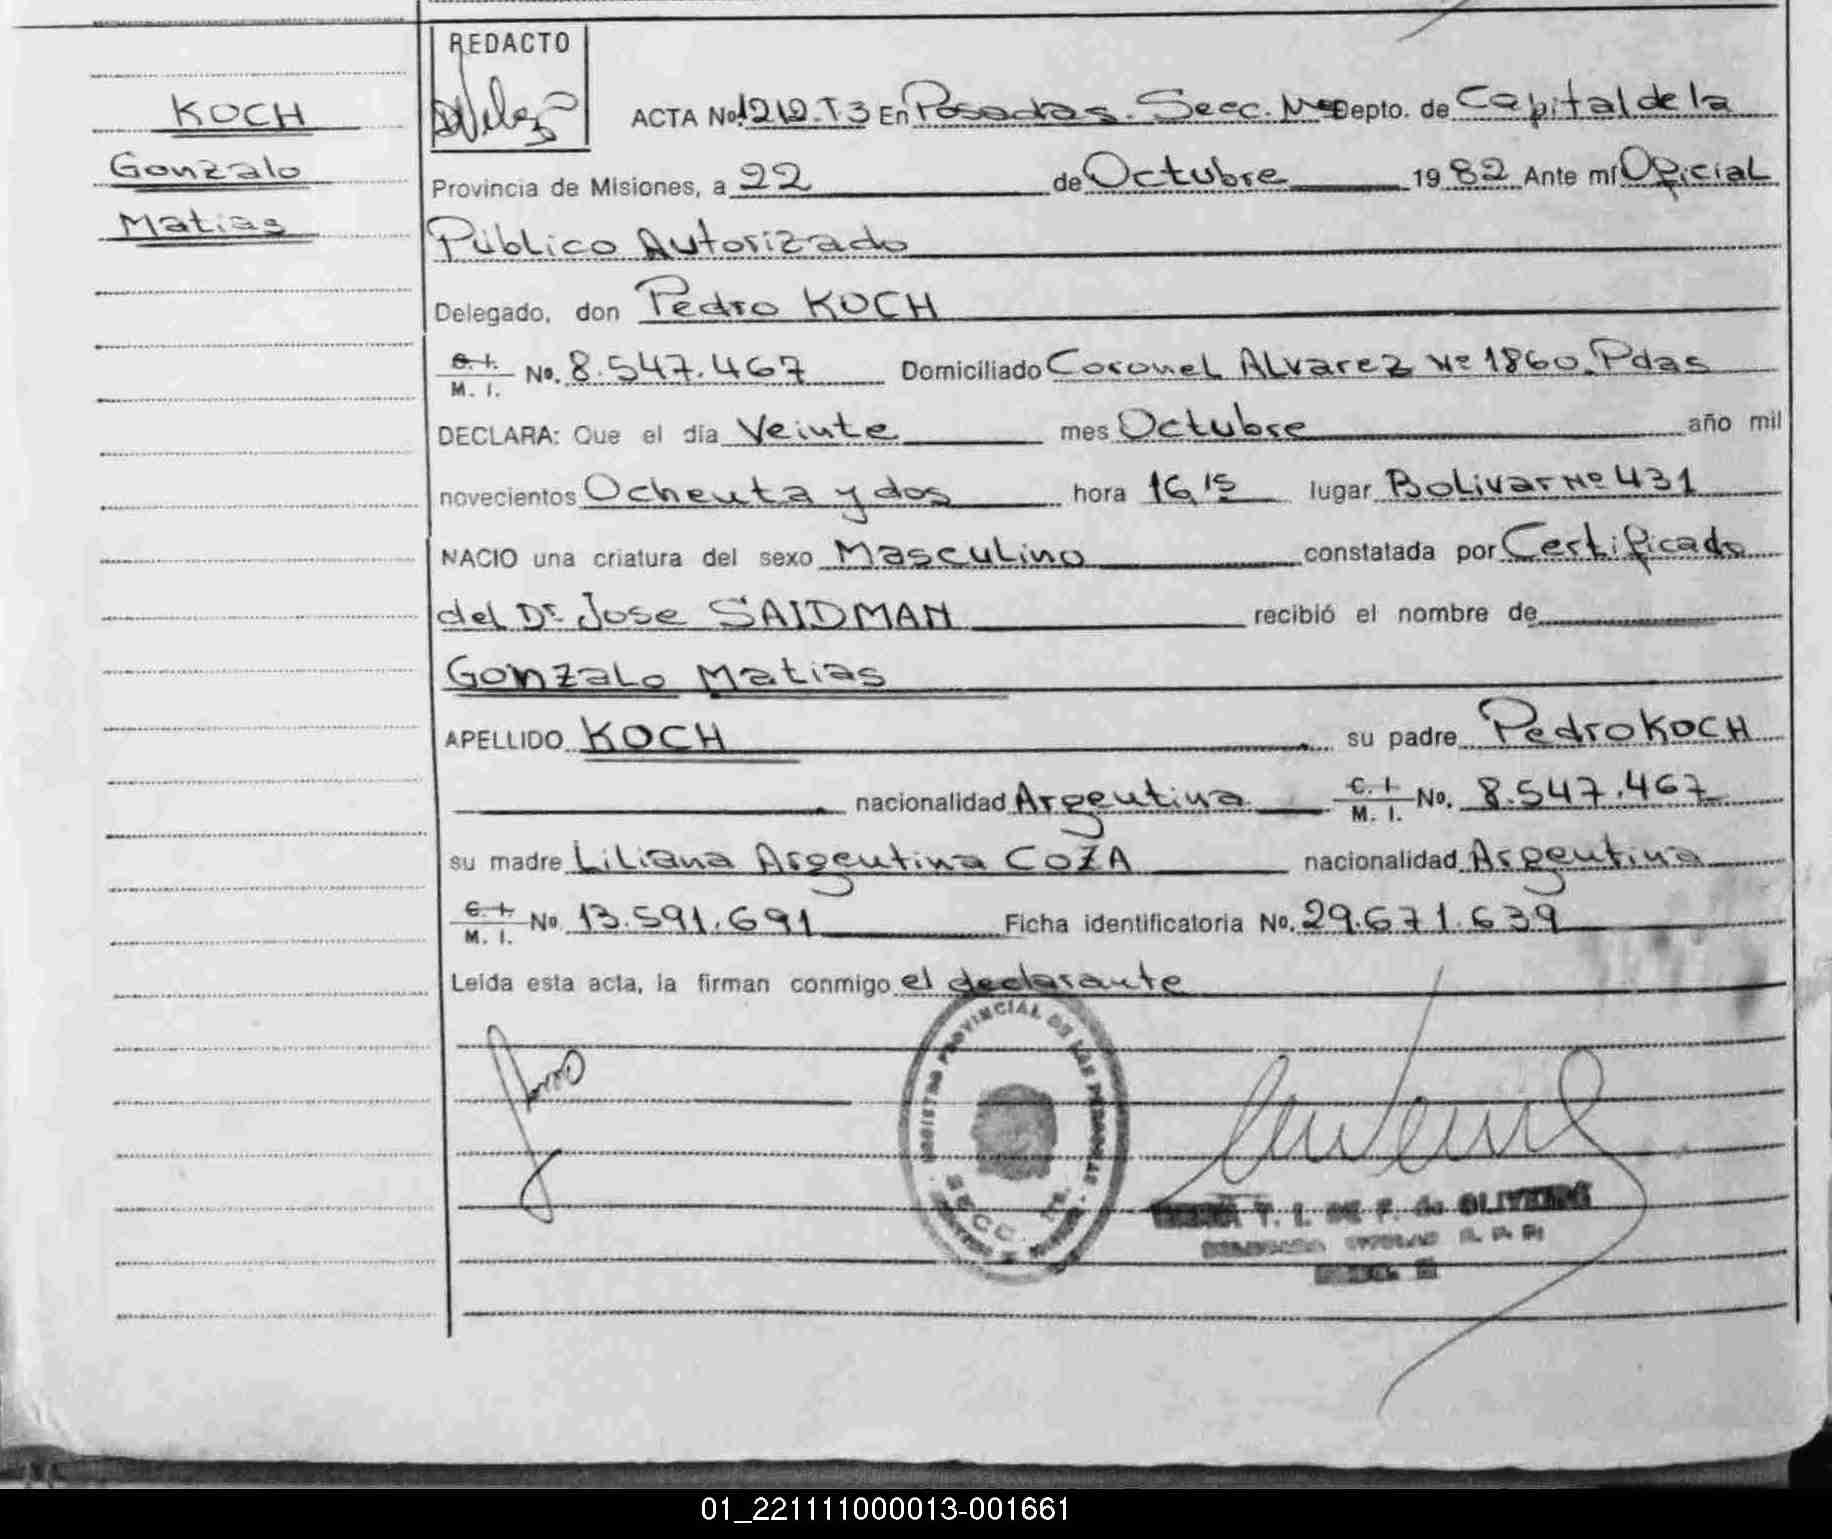 KOCH
Gonzalo
Matias
REDACTO
ACTA No. 1212.T3 En Posadas. Secc. Depto. de Capital de la
Provincia de Misiones, a 22 de Octubre 1982 Ante mí Oficial
Público Autorizado
Delegado, don Pedro KOCH
C. I. / M. I. No. 8.547.467 Domiciliado Coronel Alvarez Nº 1860. Pdas
DECLARA: Que el día Veinte mes Octubre año mil
novecientos Ochenta y dos hora 16,15 lugar Bolivar Nº 431
NACIO una criatura del sexo Masculino constatada por Certificado
del Dr. Jose SAIDMAN recibió el nombre de
Gonzalo Matias
APELLIDO KOCH su padre Pedro KOCH
nacionalidad Argentina C. I. / M. I. No. 8.547.467
su madre Liliana Argentina COZA nacionalidad Argentina
C. I. / M. I. No. 13.591.691 Ficha identificatoria No. 29.671.639
Leída esta acta, la firman conmigo el declarante
REGISTRO PROVINCIAL DE LAS PERSONAS
SECC.
T. I. DE F. de OLIVEIRA
01_221111000013-001661